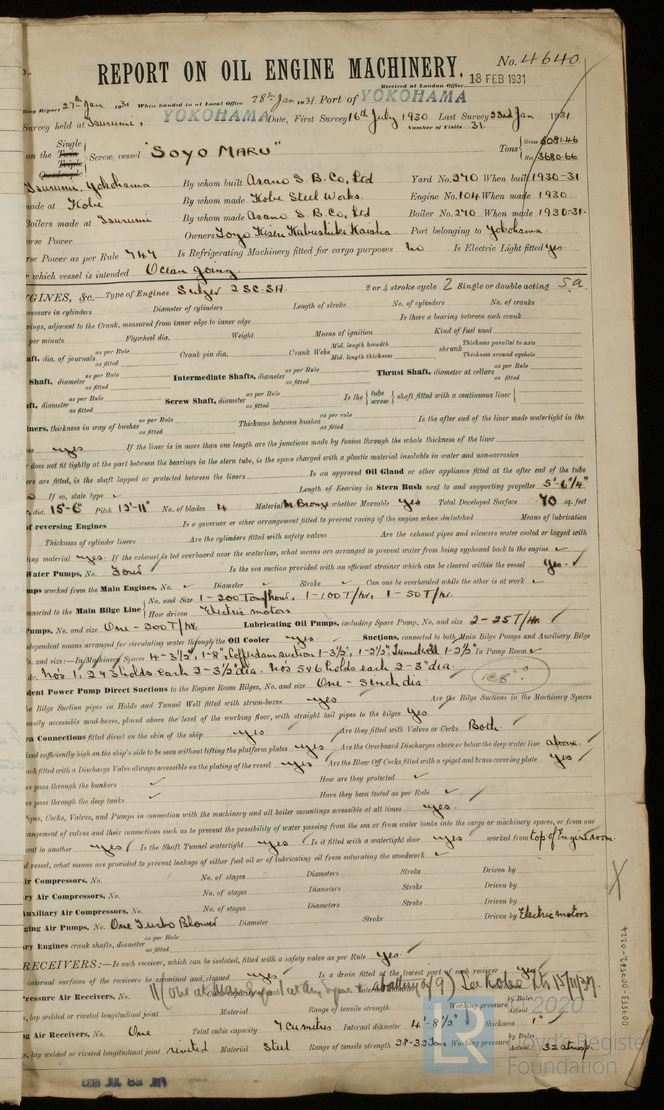 No. 4640
REPORT ON OIL ENGINE MACHINERY.
Received at London Office 18 FEB 1931
Report 27th Jan 1931 When handed in at Local Office 28th Jan 1931 Port of YOKOHAMA
Survey held at Tsurumi, YOKOHAMA Date, First Survey 16th July 1930 Last Survey 23rd Jan 1931
Number of Visits 31
on the Single Twin Triple Quadruple Screw vessel "SOYO MARU" Tons Gross 6081.46 Net 3680.66
Tsurumi, Yokohama By whom built Asano S. B. Co, Ltd Yard No. 270 When built 1930-31
made at Kobe By whom made Kobe Steel Works. Engine No. 104 When made 1930
Boilers made at Tsurumi By whom made Asano S. B. Co, Ltd Boiler No. 270 When made 1930-31.
Horse Power Owners Toyo Kisen Kabushiki Kaisha Port belonging to Yokohama
Power as per Rule 747 Is Refrigerating Machinery fitted for cargo purposes No Is Electric Light fitted yes
for which vessel is intended Ocean going.
ENGINES, &c.— Type of Engines Sulzer 2 SC. SA. 2 or 4 stroke cycle 2 Single or double acting S.a.
pressure in cylinders Diameter of cylinders Length of stroke No. of cylinders No. of cranks
bearings, adjacent to the Crank, measured from inner edge to inner edge Is there a bearing between each crank
per minute Flywheel dia. Weight Means of ignition Kind of fuel used
Shaft, dia. of journals as per Rule as fitted Crank pin dia. Crank Webs Mid. length breadth Mid. length thickness shrunk Thickness parallel to axis Thickness around eyehole
Shaft, diameter as per Rule as fitted Intermediate Shafts, diameter as per Rule as fitted Thrust Shaft, diameter at collars as per Rule as fitted
Shaft, diameter as per Rule as fitted Screw Shaft, diameter as per Rule as fitted Is the { tube screw } shaft fitted with a continuous liner
Liners, thickness in way of bushes as per Rule as fitted Thickness between bushes as per rule as fitted Is the after end of the liner made watertight in the
yes If the liner is in more than one length are the junctions made by fusion through the whole thickness of the liner
does not fit tightly at the part between the bearings in the stern tube, is the space charged with a plastic material insoluble in water and non-corrosive
liners are fitted, is the shaft lapped or protected between the liners Is an approved Oil Gland or other appliance fitted at the after end of the tube
If so, state type Length of Bearing in Stern Bush next to and supporting propeller 5'-6 1/4"
dia. 15'-6" Pitch 13'-11" No. of blades 4 Material M. Bronze whether Moveable yes Total Developed Surface 70 sq. feet
of reversing Engines Is a governor or other arrangement fitted to prevent racing of the engine when declutched Means of lubrication
Thickness of cylinder liners Are the cylinders fitted with safety valves Are the exhaust pipes and silencers water cooled or lagged with
material yes. If the exhaust is led overboard near the waterline, what means are arranged to prevent water from being syphoned back to the engine
Water Pumps, No. Four Is the sea suction provided with an efficient strainer which can be cleared within the vessel Yes.
Pumps worked from the Main Engines, No. Diameter Stroke Can one be overhauled while the other is at work
connected to the Main Bilge Line { No. and Size 1-200 Tons/hour, 1-100 T/hr, 1-50 T/hr.
How driven Electric motors
Pumps, No. and size One - 200 T/hr Lubricating Oil Pumps, including Spare Pump, No. and size 2-25 T/Hr
independent means arranged for circulating water through the Oil Cooler yes Suctions, connected to both Main Bilge Pumps and Auxiliary Bilge
and size:—In Machinery Spaces 4-3 1/2", 1-8", Cofferdam suctions 1-3 1/2", 1-2 1/2", Tunnel 1-2 1/2" In Pump Room
Nos 1, 2 & 3 holds each 2-3 1/2" dia. Nos 5 & 6 holds each 2-3" dia.
Independent Power Pump Direct Suctions to the Engine Room Bilges, No. and size One - 8 inch dia. 1@8"?
the Bilge Suction pipes in Holds and Tunnel Well fitted with strum-boxes yes Are the Bilge Suctions in the Machinery Spaces
easily accessible mud-boxes, placed above the level of the working floor, with straight tail pipes to the bilges yes
Sea Connections fitted direct on the skin of the ship yes Are they fitted with Valves or Cocks Both
fixed sufficiently high on the ship's side to be seen without lifting the platform plates yes Are the Overboard Discharges above or below the deep water line above.
each fitted with a Discharge Valve always accessible on the plating of the vessel yes Are the Blow Off Cocks fitted with a spigot and brass covering plate Yes
pipes pass through the bunkers How are they protected
pipes pass through the deep tanks Have they been tested as per Rule
Pipes, Cocks, Valves, and Pumps in connection with the machinery and all boiler mountings accessible at all times yes.
arrangement of valves and their connections such as to prevent the possibility of water passing from the sea or from water tanks into the cargo or machinery spaces, or from one
to another yes Is the Shaft Tunnel watertight yes Is it fitted with a watertight door yes worked from top of Engine room.
vessel, what means are provided to prevent leakage of either fuel oil or of lubricating oil from saturating the woodwork
Air Compressors, No. No. of stages Diameters Stroke Driven by
Air Compressors, No. No. of stages Diameters Stroke Driven by
Auxiliary Air Compressors, No. No. of stages Diameters Stroke Driven by
Air Pumps, No. One Turbo Blower Diameter Stroke Driven by Electric motors
Engines crank shafts, diameter as per Rule as fitted
RECEIVERS:— Is each receiver, which can be isolated, fitted with a safety valve as per Rule yes.
internal surfaces of the receivers be examined and cleaned yes Is a drain fitted at the lowest part of each receiver yes
Pressure Air Receivers, No.
lap welded or riveted longitudinal joint Material Range of tensile strength Working pressure by Rules Actual
Air Receivers, No. One Total cubic capacity 7 Cu metres Internal diameter 4'-8 1/2" thickness 1"
lap welded or riveted longitudinal joint riveted Material Steel Range of tensile strength 28-32 tons Working pressure by Rules Actual 32 atmos
© 2020
LR
Lloyd's Register
Foundation